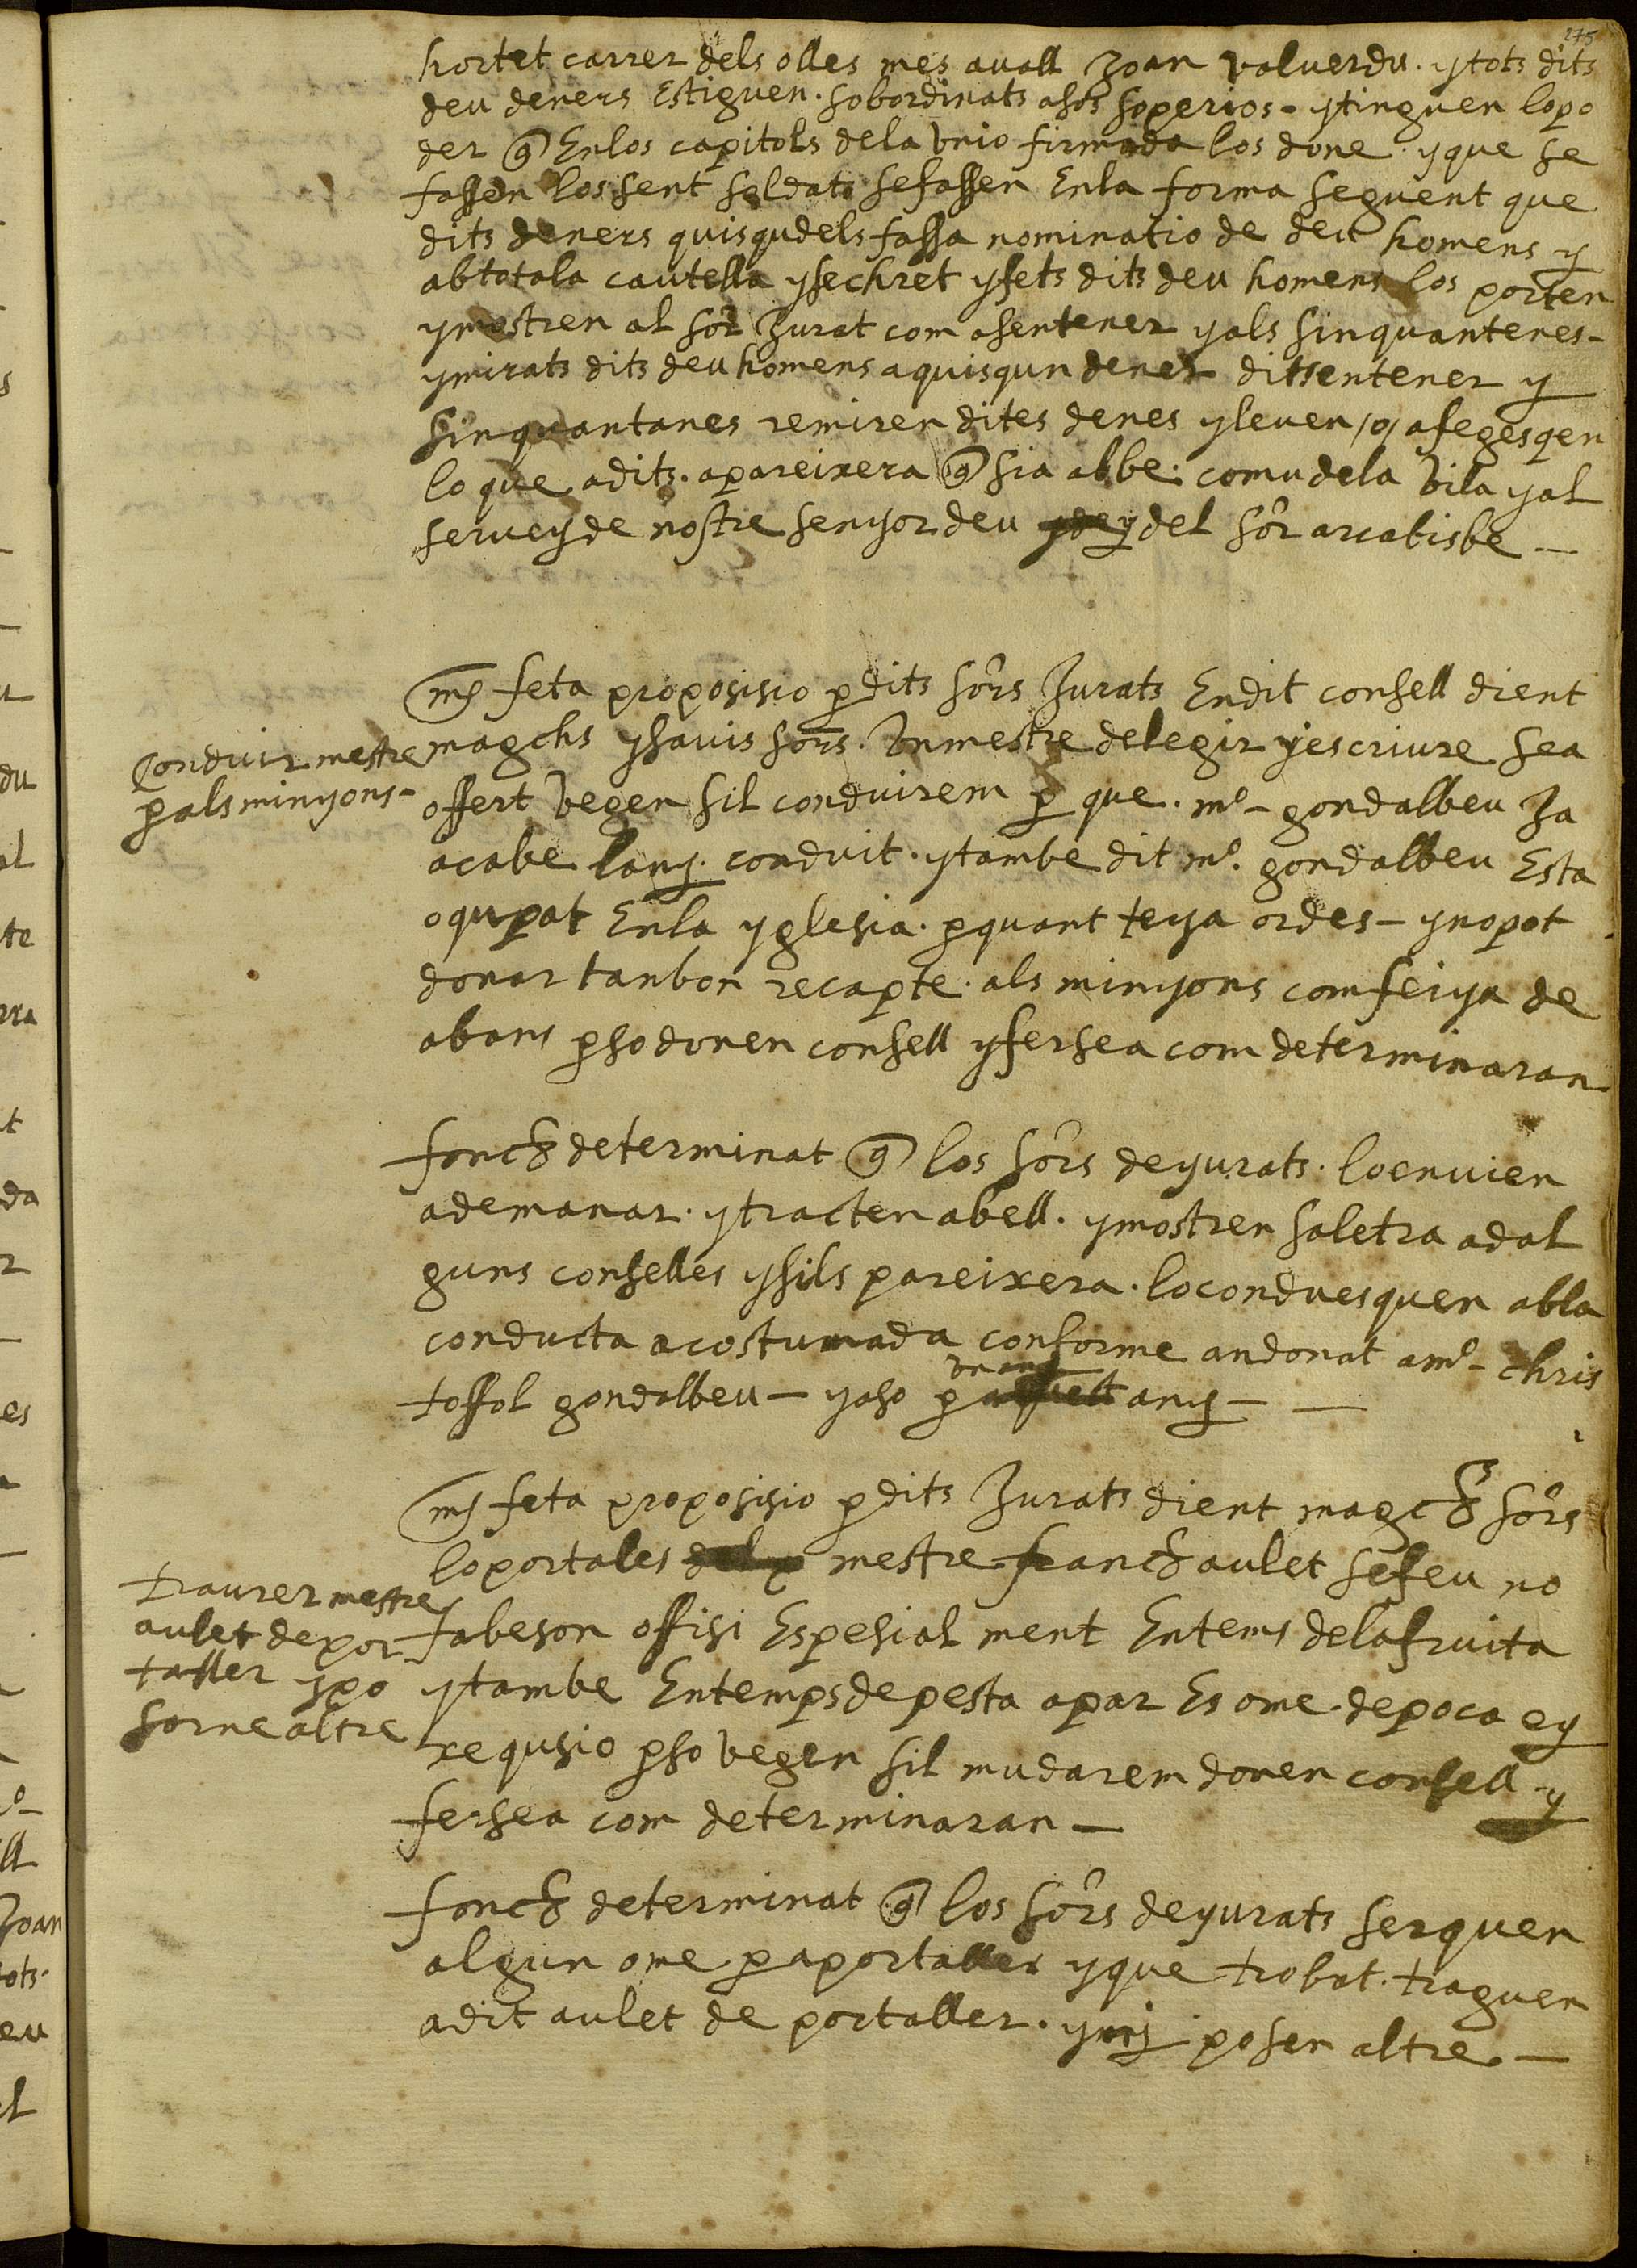 275
hortet carrer dels olles mes auall Joan valuerdu. ytots dits
deu deners Estiguen. sobordinats a sos soperios - ytinguen lo po
der q̃ Enlos capitols dela Vnio firmada los done. yque se
fassen los sent soldats sefassen Enla forma seguent que
dits deners quisqudels fassa nominatio de deu homens y
abtotala cautella ysechret yfets dits deu homens los porten
ymostren al sor̃ Jurat com asentener yals sinquantenes -
ymirats dits deu homens a quisqun dener ditsentener y
sinquantanes remiren dites denes yleuen /o/ afegesqen
lo que adits. apareixera q̃ sia al be. comu dela Vila yal
servey de nostre senyor deu y del sor̃ arcabisbe —
Conduir mestre
p̱als minyons -
mes feta proposisio p̱ dits sors̃ Jurats Endit consell dient
magchs ysauis sors̃. Vn mestre delegir yescriure sea
offert vegen sil conduirem p̱ que. mo - gondalbeu Ja
acabe lany. conduit. ytambe dit mo. gondalbeu Esta
oqupat Enla yglesia. p̱quant teya ordes - ynopot
donar tanbon recapte. als minyons com feiya de
abans p̱so donen consell yfersea com determinaran
fonch determinat q̃ los sors̃ de yurats. loenuien
ademanar. ytracten abell. ymostren saletra adal
guns conselles ysils pareixera. loconduesquen abla
conducta acostumada conforme andonat amo - chris
toffol gondalbeu - yaso p̱ vn any aquell any - —
mes feta proposisio p̱ dits Jurats dient magchs sors̃
Traurer mestre
aulet de por
taller ypo
sarne altre
loportales mestre franch aulet sefeu no
fabeson offisi Espesial ment Entems delafruita
ytambe Entemps de pesta apar Es ome. depoca ey
xequsio p̱so vegen sil mudarem donen consell y
fersea com determinaran —
fonch determinat q̃ los sors̃ de yurats serquen
algun ome p̱ aportaller yque trobat. traguen
adit aulet de portaller. yni posen altre —